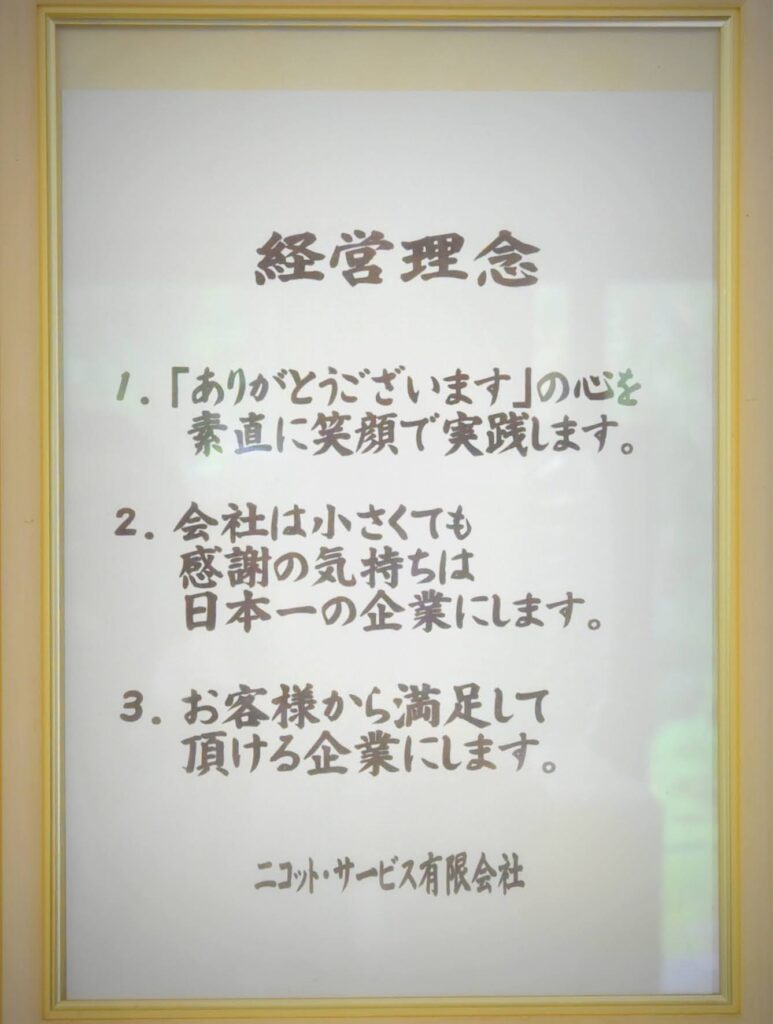 経営理念
1.「ありがとうございます」の心を
素直に笑顔で実践します。
2.会社は小さくても
感謝の気持ちは
日本一の企業にします。
3.お客様から満足して
頂ける企業にします。
ニコット・サービス有限会社